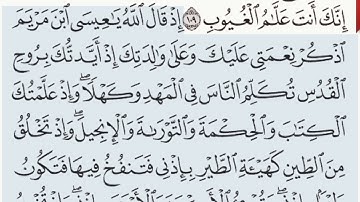 إِنَّكَ أَنتَ عَلَّٰمُ ٱلْغُيُوبِ ١٠٩ إِذْ قَالَ ٱللَّهُ يَٰعِيسَى ٱبْنَ مَرْيَمَ
ٱذْكُرْ نِعْمَتِى عَلَيْكَ وَعَلَىٰ وَٰلِدَتِكَ إِذْ أَيَّدتُّكَ بِرُوحِ
ٱلْقُدُسِ تُكَلِّمُ ٱلنَّاسَ فِى ٱلْمَهْدِ وَكَهْلًا ۖ وَإِذْ عَلَّمْتُكَ
ٱلْكِتَٰبَ وَٱلْحِكْمَةَ وَٱلتَّوْرَىٰةَ وَٱلْإِنجِيلَ ۖ وَإِذْ تَخْلُقُ
مِنَ ٱلطِّينِ كَهَيْـَٔةِ ٱلطَّيْرِ بِإِذْنِى فَتَنفُخُ فِيهَا فَتَكُونُ